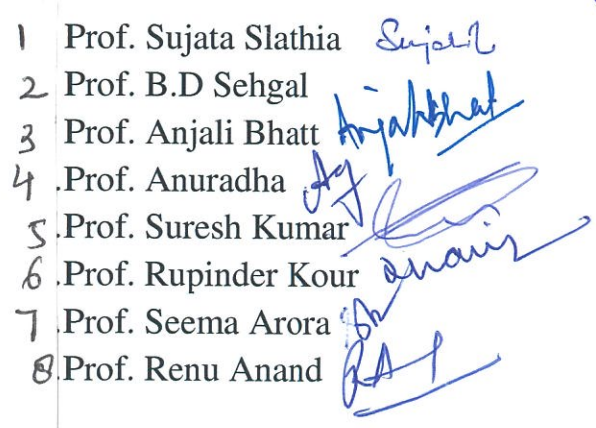 1 Prof. Sujata Slathia Sujata
2 Prof. B.D Sehgal
3 Prof. Anjali Bhatt Anjali Bhat
4 .Prof. Anuradha
5 .Prof. Suresh Kumar
6 .Prof. Rupinder Kour
7 .Prof. Seema Arora
8 .Prof. Renu Anand